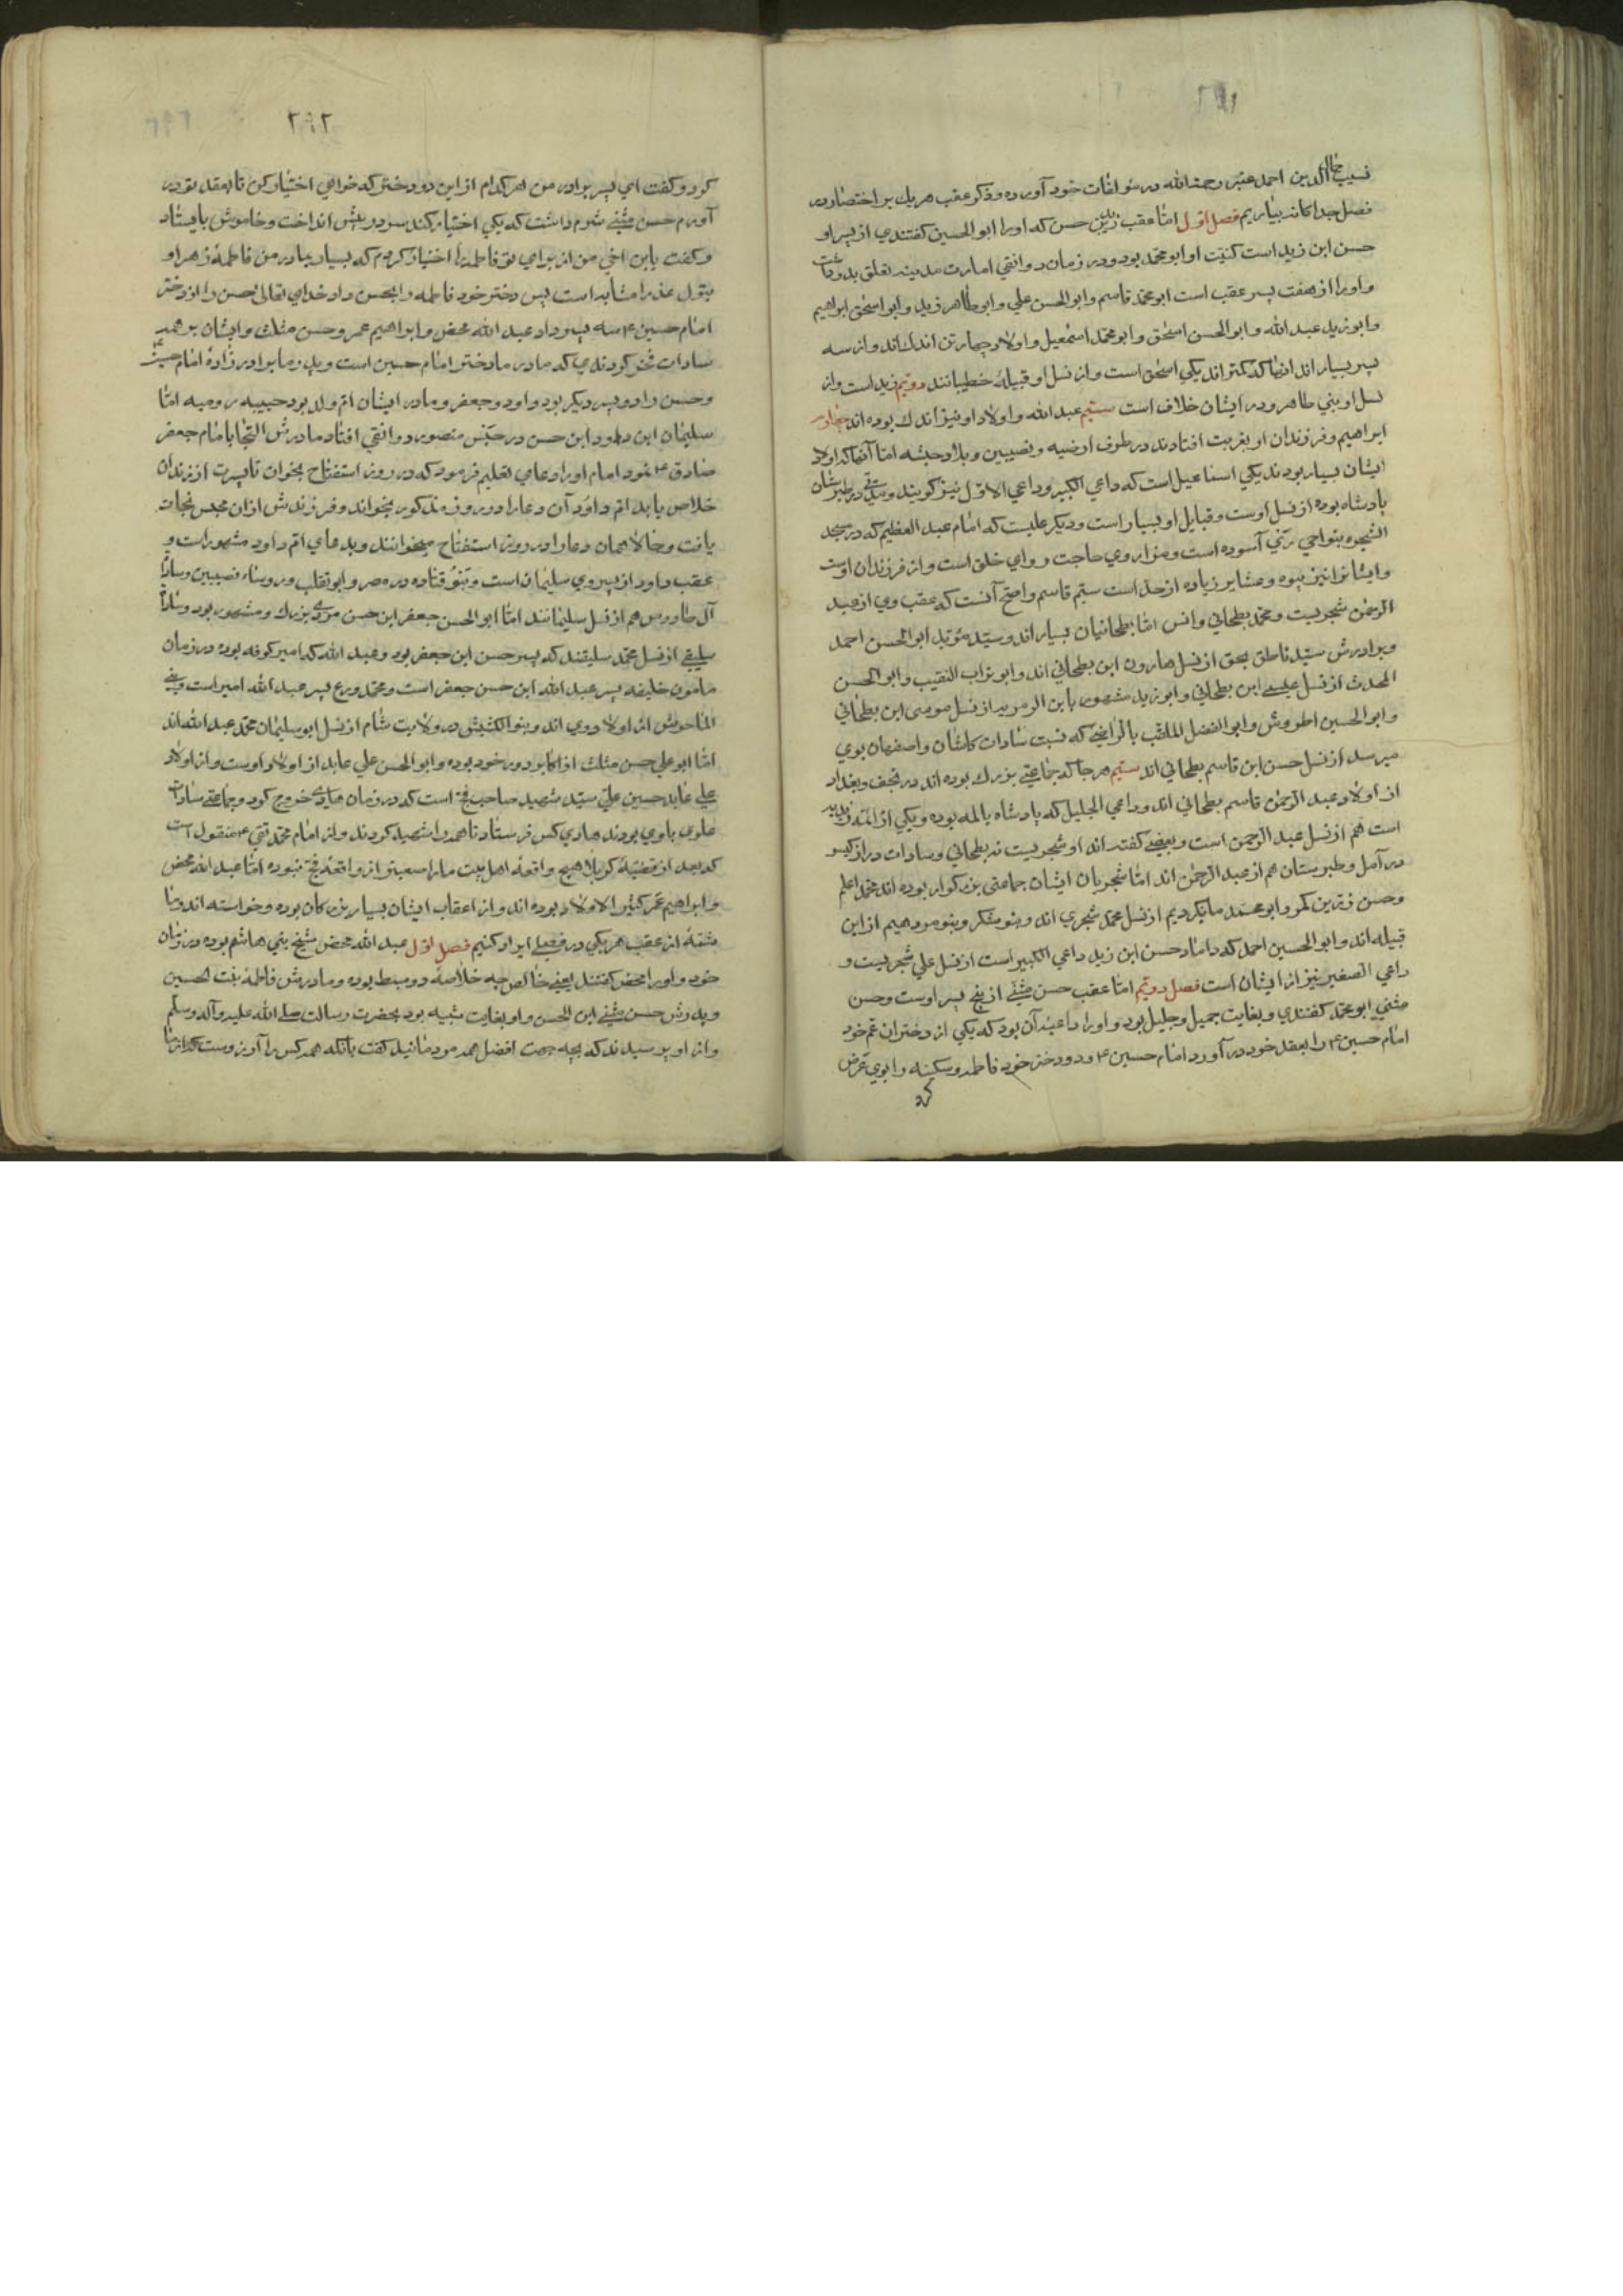 نسیب جمال الدین احمد عنبه رحمة الله در مؤلفات خود آورده و ذکر عقب هر یک بر اختصار در
فصل جداکانه بیاریم فصل اول امّا عقب زید بن حسن که او را ابوالحسین کفتندی از پسر او
حسن ابن زید است کنیت او ابو محمّد بود و در زمان دوانقی امارت مدینه تعلق بدو داشت
و او را از هفت پسر عقب است ابو محمّد قاسم و ابوالحسن علی و ابوطاهر زید و ابواسحٰق ابراهیم
و ابو زید عبد الله و ابوالحسن اسحٰق و ابو محمّد اسمٰعیل و اولاد چهار تن اندک اند و از سه
پسر بسیار اند اینها که کمتر اند یکی اسحٰق است و از نسل او قبیلهٔ خطیبانند دویّم زید است و از
نسل او بنی طاهر و در ایشان خلاف است سیّم عبد الله و اولاد او نیز اندک بوده اند چهارم
ابراهیم و فرزندان او بغربت افتادند در طرف ارضیه و نصیبین و بلاد حبشه امّا آنها که اولاد
ایشان بسیار بودند یکی اسماعیل است که داعی الکبیر و داعی الاوّل نیز کویند و مدتی در طبرستان
پادشاه بوده از نسل اوست و قبایل او بسیار است و دیکر علیست که امام عبد العظیم که در مسجد
الشجره بنواحی ری آسوده است و مزار وی حاجت روای خلق است و از فرزندان اوست
و ایشانرا نیز نبیره و عشایر زیاده از حدّ است سیّم قاسم و اصحّ آنست که عقب وی از عبد
الرحمٰن شجریست و محمّد بطحانی و انس امّا بطحانیان بسیار اند و سیّد مؤید ابوالحسن احمد
و برادرش سیّد ناطق بحق از نسل هارون ابن بطحانی اند و ابوتراب النقیب و ابوالحسن
المحدث از نسل عیسی ابن بطحانی و ابو زید مشهور بابن الزمرید از نسل موسی ابن بطحانی
و ابوالحسین اطروش و ابوالفضل الملقّب بالرّاضی که نسبت سادات کاشان و اصفهان بوی
میرسد از نسل حسن ابن قاسم بطحانی اند سیّم هر جا که جماعتی بزرک بوده اند در نجف و بغداد
از اولاد عبد الرحمٰن قاسم بطحانی اند و داعی الجلیل که پادشاه یالمه بوده و یکی از ائمّه زیدیه
است هم از نسل عبد الرحمن است و بعضی کفته اند او شجریست نه بطحانی و سادات دراز کیسو
در آمل و طبرستان هم از عبد الرحمٰن اند امّا شجریان ایشان جماعتی بزرکوار بوده اند محمّد اعلم
و حسن زرین کمر و ابو محمّد مانکردیم از نسل محمّد شجری اند و بنو شکر و بنو مردهیم از این
قبیله اند و ابوالحسین احمد که داماد حسن ابن زید داعی الکبیر است از نسل علی شجریست و
داعی الصغیر نیز از ایشان است فصل دویّم امّا عقب حسن مثنّی از پنج پسر اوست و حسن
مثنّی ابو محمّد کفتندی و بغایت جمیل و جلیل بود و او را داعیهٔ آن بود که یکی از دختران عم خود
امام حسین ع را بعقد خود در آورد امام حسین ع دو دختر خود فاطمه و سکینه را بوی عرض
کرد
٢٩٢
کرد و کفت ای پسر برادر من هر کدام از این دو دختر که خواهی اختیار کن تا بعقد تو در
آورم حسن مثنّی شرم داشت که یکی اختیار کند سر در پیش انداخت و خاموش بایستاد
و کفت یابن اخی من از برای تو فاطمه را اختیار کردم که بسیار بمادر من فاطمهٔ زهرا و
بتول عذرا مشابه است پس دختر خود فاطمه را بحسن داد خدای تعالی حسن را از دختر
امام حسین ع سه پسر داد عبد الله محض و ابراهیم عمر و حسن مثلث و ایشان بر همه
سادات فخر کردندی که مادر ما دختر امام حسین است و پدر ما برادر زادهٔ امام حسین ع
و حسن را دو پسر دیکر بود داود و جعفر و مادر ایشان امّ ولد بود حبیبه رومیه امّا
سلیمان ابن داود ابن حسن در حبس منصور دوانقی افتاد مادرش التجا بامام جعفر
صادق ع نمود امام او را دعایی تعلیم فرمود که در روز استفتاح بخوان تا پسرت از زندان
خلاص یابد امّ داود آن دعا را در روز مذکور بخواند و فرزندش از ان محبس نجات
یافت و حالا همان دعا را در روز استفتاح میخوانند و بدعای امّ داود مشهور است و
عقب داود از پسر وی سلیمان است و بنو قتاده در مصر و ابو تغلب و روساء نصیبین و سادات
آل طاووس هم از نسل سلیمانند امّا ابوالحسن جعفر ابن حسن مردی بزرک و مشهور بود و سادات
سلیقی از نسل محمّد سلیقند که پسر حسن ابن جعفر بود و عبد الله که امیر کوفه بوده در زمان
مامون خلیفه پسر عبد الله ابن حسن جعفر است و محمّد ورع پسر عبد الله امیر است و بنی
الماحوش از اولاد وی اند و بنو الکشیش در ولایت شام از نسل ابو سلیمان محمّد عبد الله اند
امّا ابو علی حسن مثلث از اکابر دور خود بوده و ابوالحسن علی عابد از اولاد اوست و از اولاد
علی عابد حسین علی سیّد شهید صاحب فخّ است که در زمان هادی خروج کرد و جماعتی سادات
علوی با وی بودند هادی کس فرستاد تا همه را شهید کردند و از امام محمّد تقی ع منقول است
که بعد از قضیّهٔ کربلا هیچ واقعهٔ اهل بیت ما را صعبتر از واقعهٔ فخّ نبوده امّا عبد الله محض
و ابراهیم عمر کثیر الاولاد بوده اند و از اعقاب ایشان بسیار بزرکان بوده و خواسته اند و ما
شمّهٔ از عقب هر یکی در فصلی ایراد کنیم فصل اوّل عبد الله محض شیخ بنی هاشم بوده در زمان
خود و او را محض کفتند یعنی خالص چه خلاصهٔ دو سبط بوده و مادرش فاطمه بنت لحسین
و پدرش حسن مثنّی ابن الحسن و او بغایت شبیه بود بحضرت رسالت صلی الله علیه و آله و سلّم
و از او پرسیدند که بچه جهت افضل همه مردمانید کفت بآنکه همه کس را آرزوست که از ما